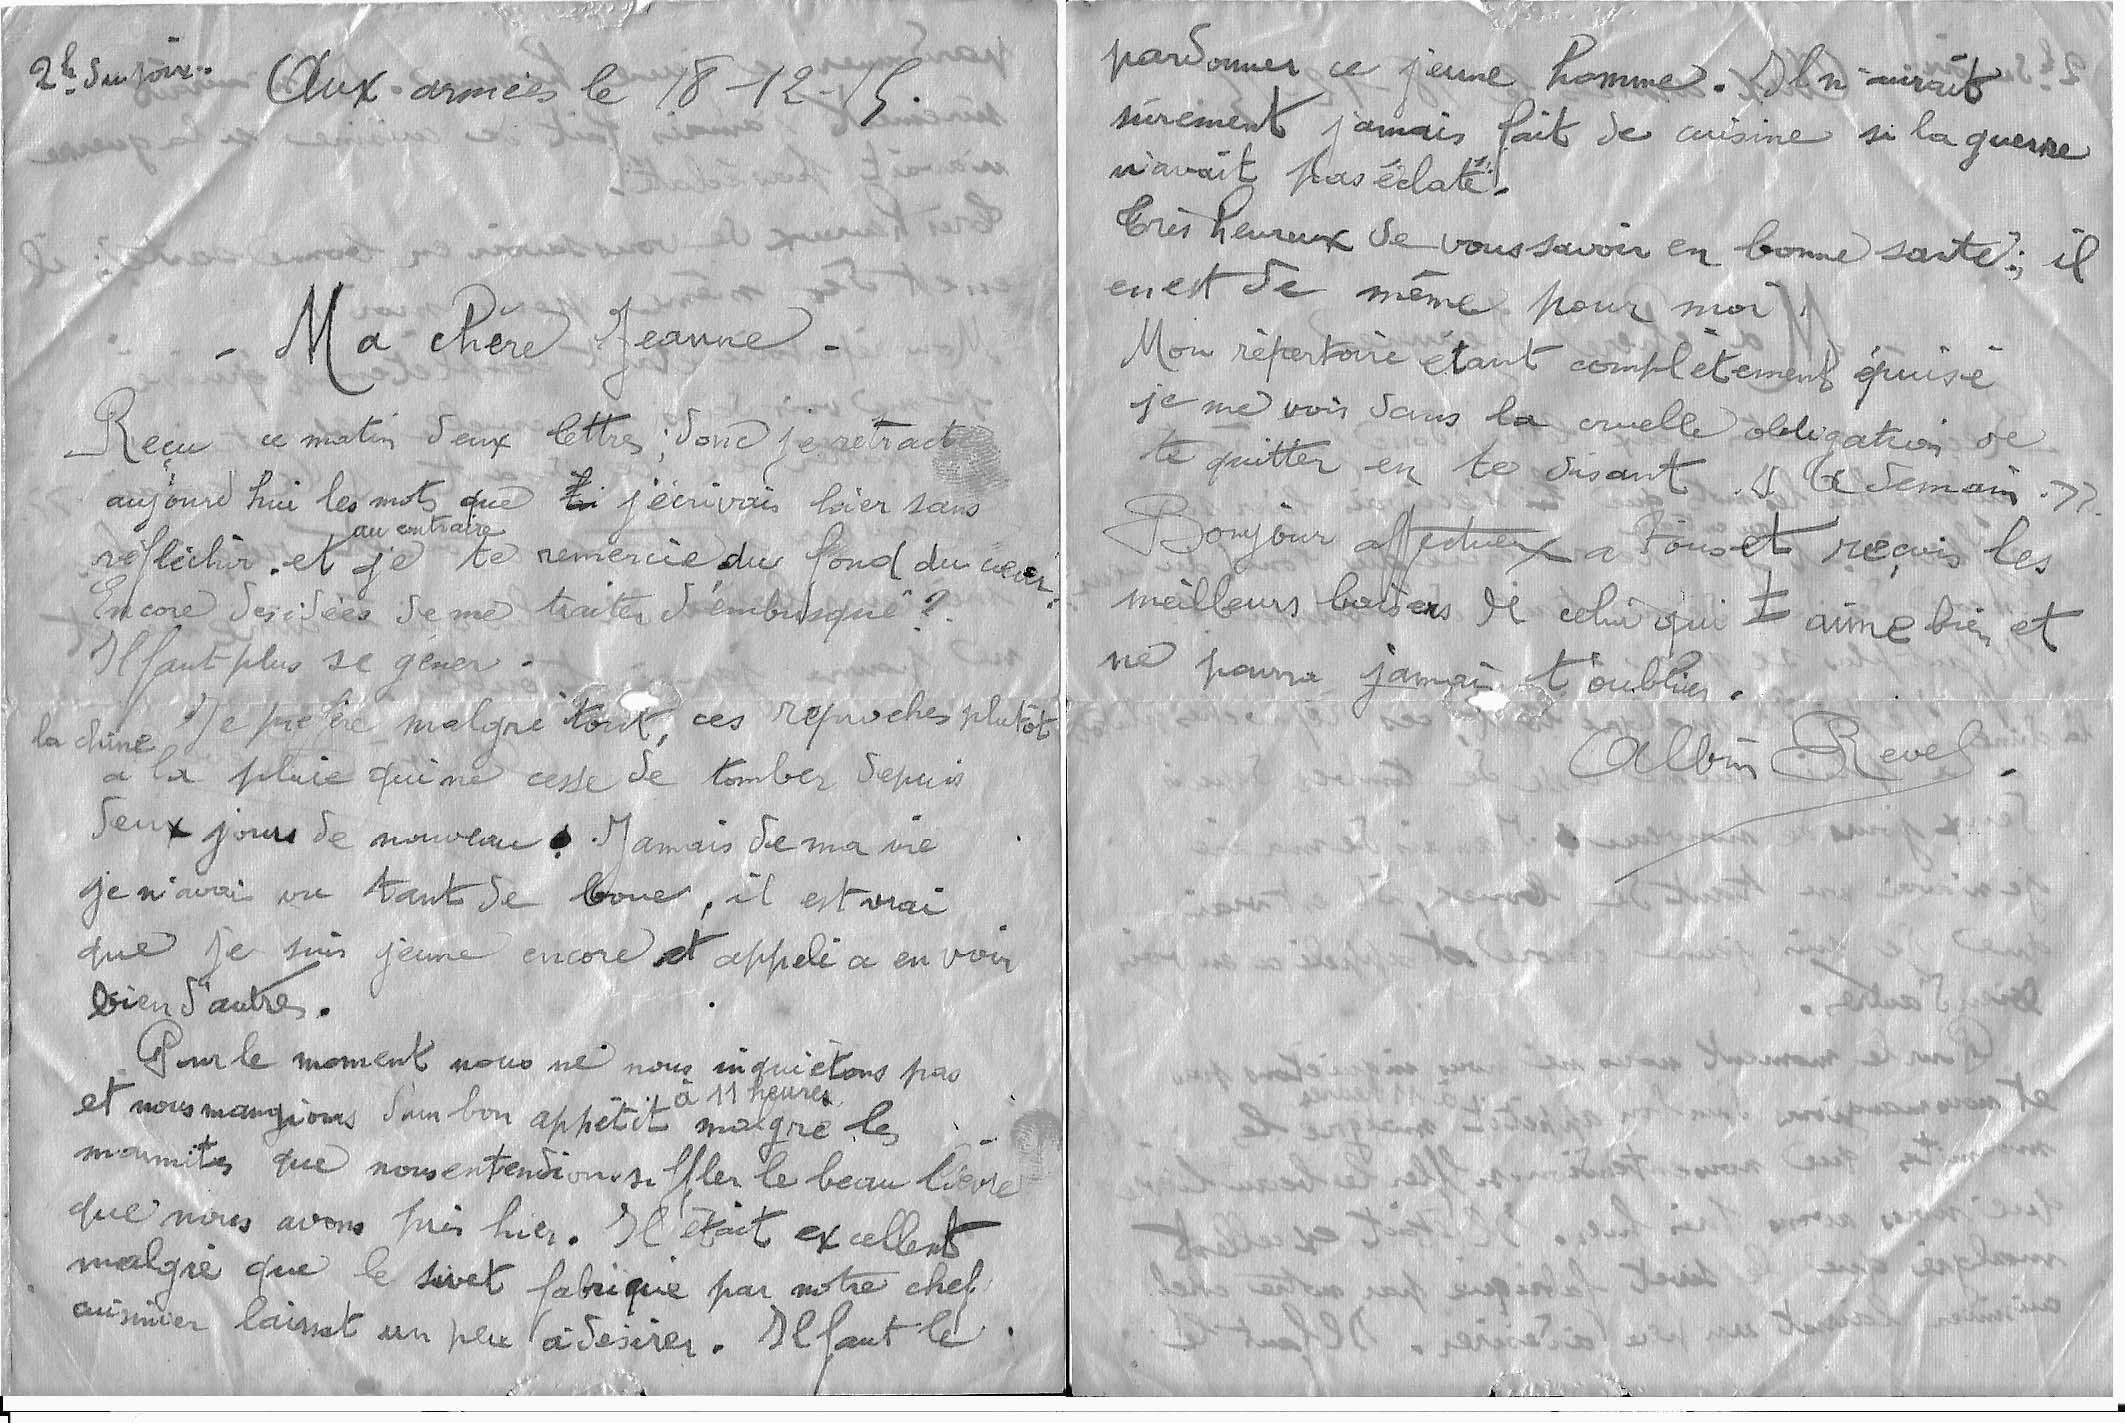 2h du soir. Aux armées le 18-12-15.
- Ma chère Jeanne -
Reçu ce matin deux lettres, donc je retracte
aujourd'hui les mots que j'écrivais hier sans
au contraire
réfléchir. et je te remercie du fond du cœur.
Encore des idées de me traiter d'embusqué ?
Il faut plus se gêner.
Je préfère malgré tout, ces reproches plutôt
la chine
a la pluie qui ne cesse de tomber depuis
deux jours de nouveau. Jamais de ma vie
je n'avais vu tant de boue, il est vrai
que je suis jeune encore et appelé a en voir
bien d'autres.
Pour le moment nous ne nous inquiétons pas
à 11 heures
et nous mangions d'un bon appétit malgré les
marmites que nous entendions siffler le beau lièvre
que nous avons pris hier. Il était excellent
malgré que le sivet fabriqué par notre chef
cuisinier laissat un peu à désirer. Il faut le
pardonner ce jeune homme. Il n'aurait
sûrement jamais fait de cuisine si la guerre
n'avait pas éclaté.
Très heureux de vous savoir en bonne santé ; il
en est de même pour moi.
Mon répertoire étant complètement épuisé
je me vois dans la cruelle obligation de
te quitter en te disant « A demain. »
Bonjour affectueux a tous et reçois les
meilleurs baisers de celui qui t'aime bien et
ne pourra jamais t'oublier.
Albin Revel.